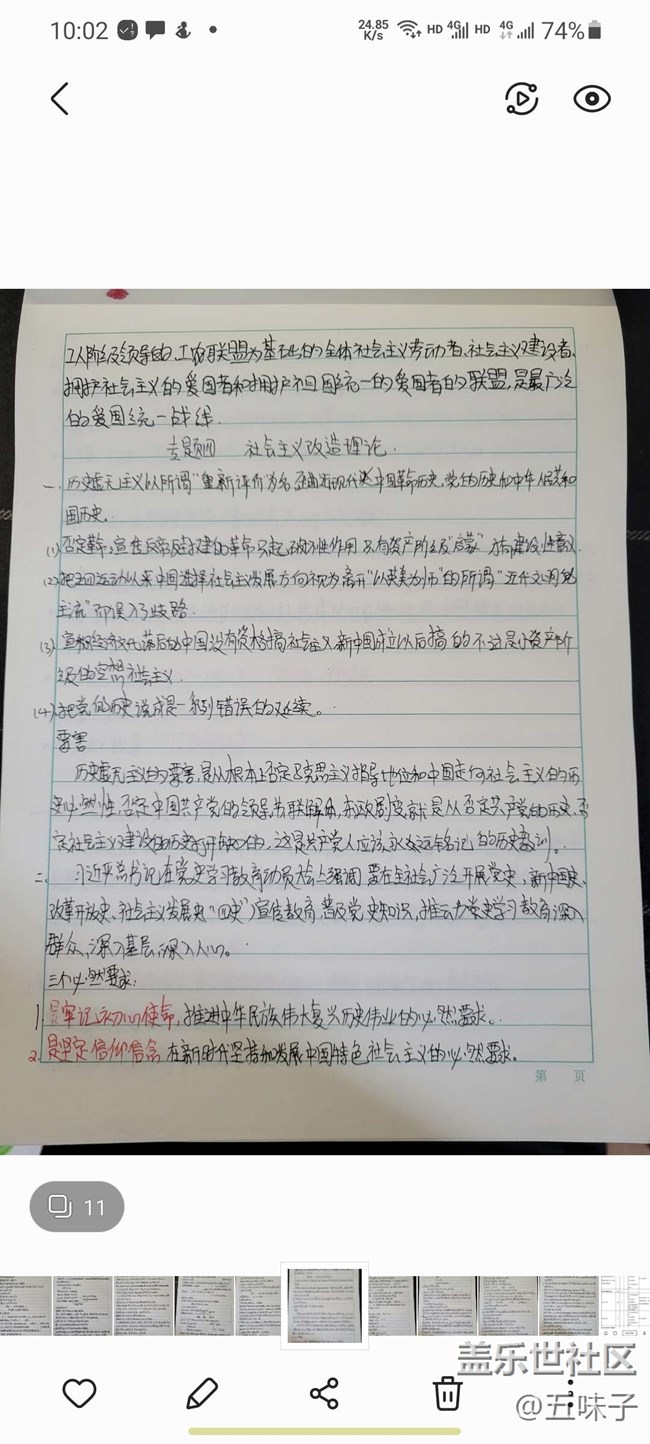 10:02
24.85
K/s
HD 4G HD 4G 74%
工人阶级领导的、工农联盟为基础的全体社会主义劳动者、社会主义建设者、
拥护社会主义的爱国者和拥护祖国统一的爱国者的联盟,是最广泛
的爱国统一战线.
专题四 社会主义改造理论.
一. 历史虚无主义以所谓“重新评价”为名,歪曲近现代中国革命历史、党的历史和中华人民共和
国历史.
(1) 否定革命,宣传反帝反封建的革命只起破坏性作用 只有资产阶级“启蒙”才有建设性意义.
(2) 把五四运动以来中国选择社会主义发展方向视为离开“以英美为师”的所谓“近代文明的
主流”而误入了歧路.
(3) 宣称经济文化落后的中国没有资格搞社会主义,新中国成立以后搞的不过是小资产阶
级的空想社会主义.
(4) 把党的历史说成是一系列错误的延续。
要害
历史虚无主义的要害,是从根本上否定马克思主义指导地位和中国走向社会主义的历
史必然性,否定中国共产党的领导.苏联解体,东欧剧变就是从否定共产党的历史、否
定社会主义建设的历史打开缺口的,这是共产党人应该永远铭记的历史教训。
二. 习近平总书记在党史学习教育动员大会上强调 要在全社会广泛开展党史,新中国史、
改革开放史、社会主义发展史(“四史”)宣传教育,普及党史知识,推动党史学习教育深入
群众、深入基层、深入人心。
三个必然要求:
1. 是牢记初心使命,推进中华民族伟大复兴历史伟业的必然要求.
2. 是坚定信仰信念 在新时代坚持和发展中国特色社会主义的必然要求.
第 页
11
盖乐世社区
@五味子